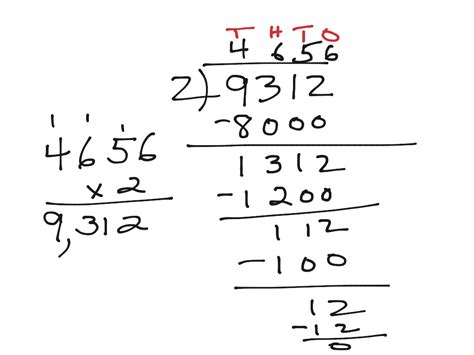 T H T O
4 6 5 6
2)9312
-8000
1312
-1200
112
-100
12
-12
0
1 1 1
4656
x 2
9,312